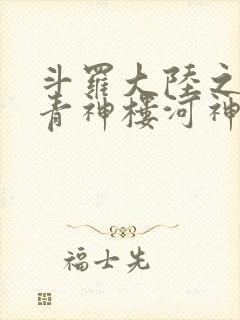 斗羅大陸之
青神樓河神
福士先